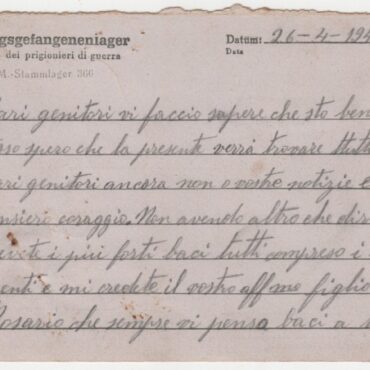 gsgefangenenlager
Datum: 26-4-194
dei prigionieri di guerra
Data
M.-Stammlager 366
ari genitori vi faccio sapere che sto ben
so spero che la presente verrà trovare tutt
ari genitori ancora non o vostre notizie e
nsiero coraggio. Non avendo altro che dir
evete i più forti baci tutti compreso i
enti e mi credete il vostro aff mo figlio
Rosario che sempre vi pensa baci a